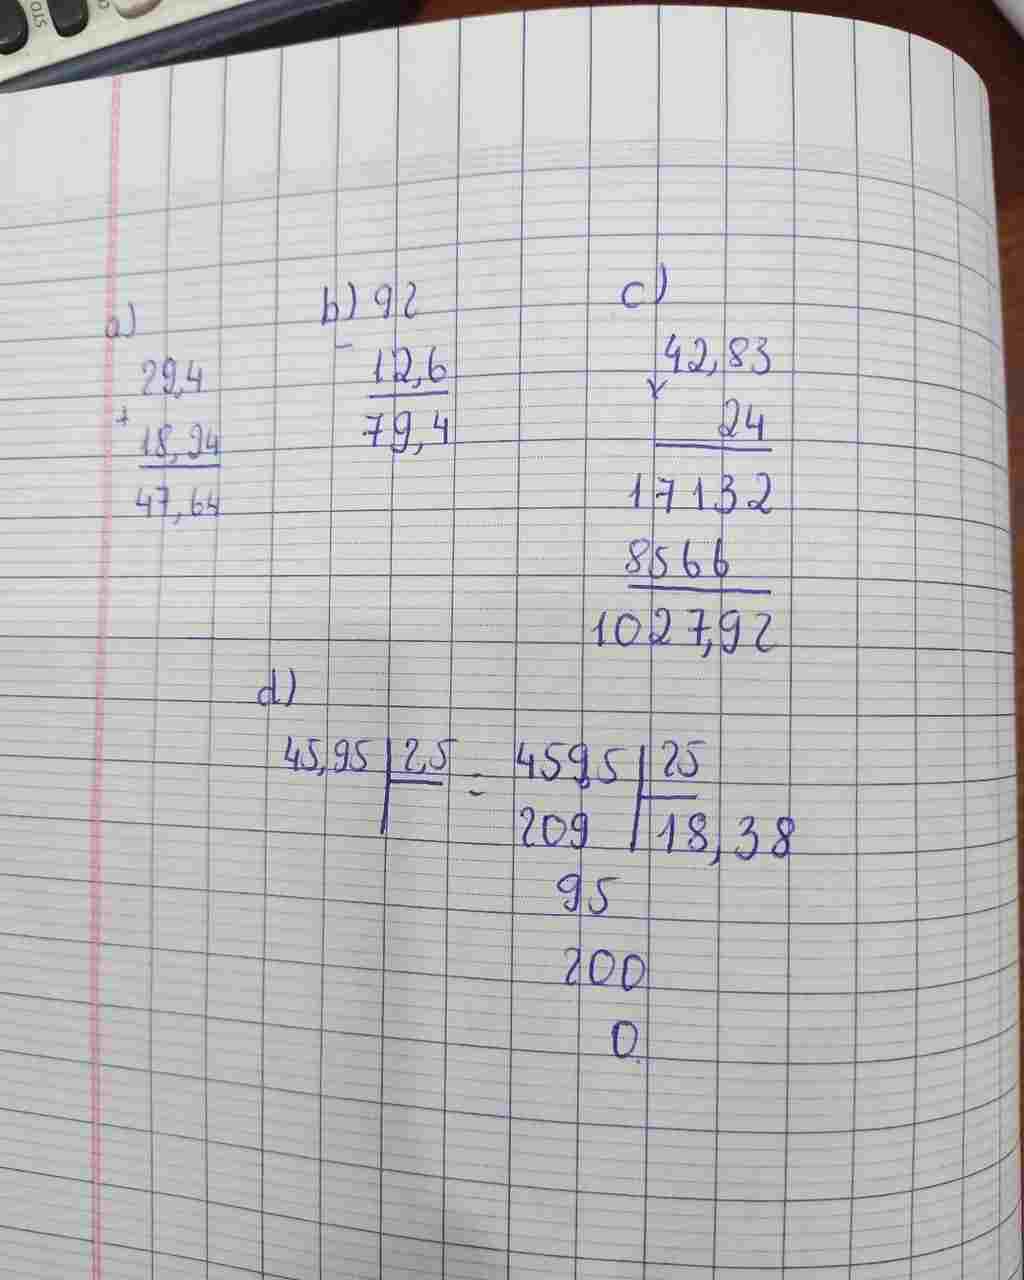 a)
29,4
+
18,24
47,64
b) 92
-
12,6
79,4
c)
42,83
x
24
17132
8566
1027,92
d)
45,95 | 2,5 = 4595 | 25
209 | 18,38
95
200
0